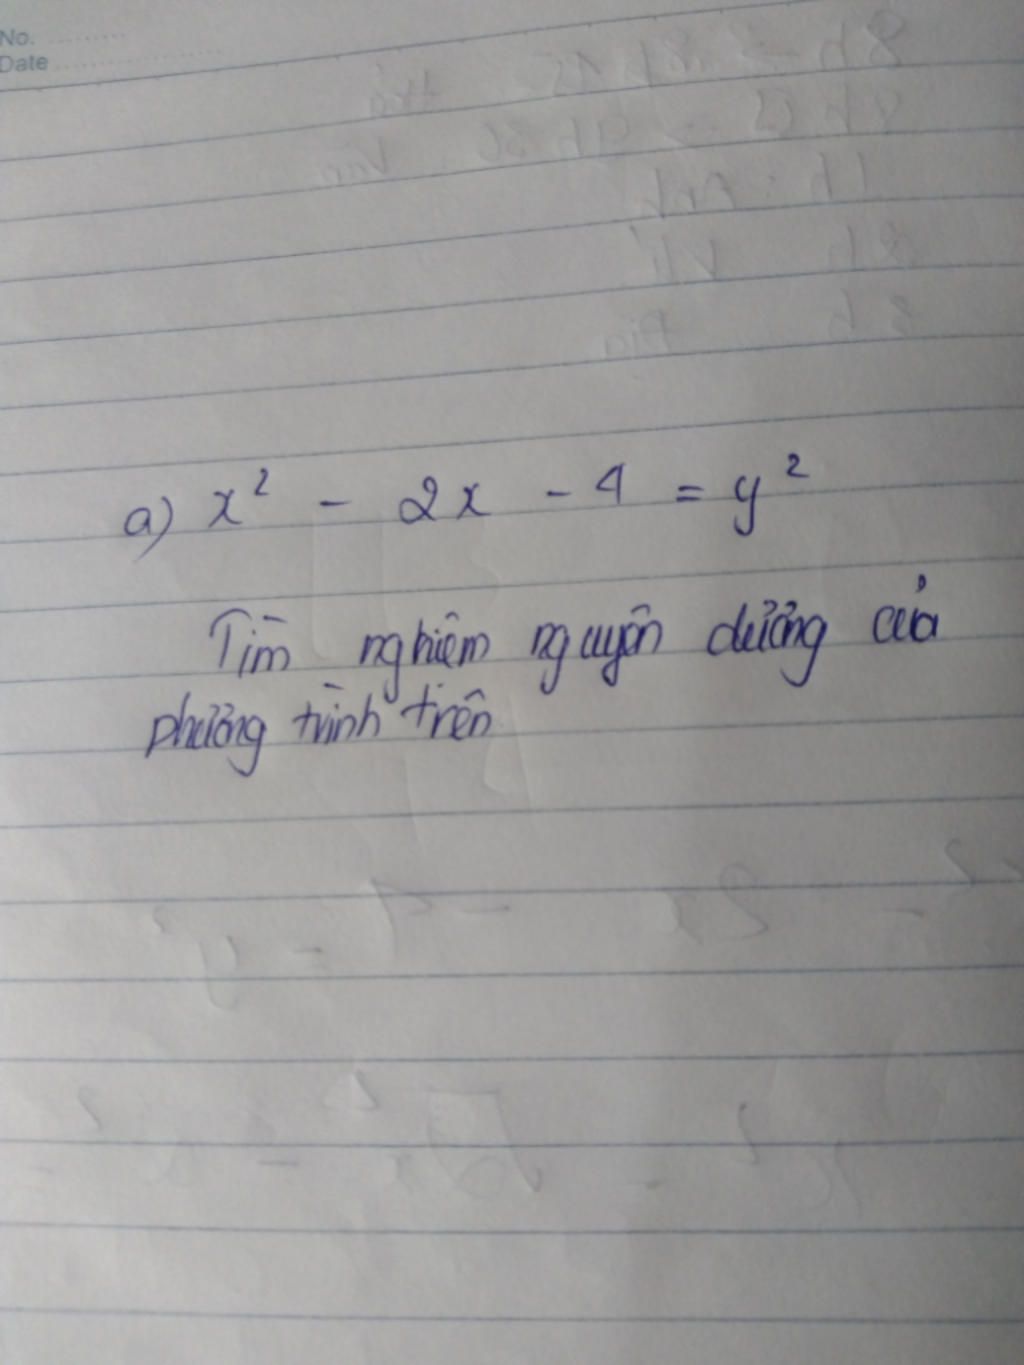 No.
Date
a) x² - 2x - 4 = y²
Tìm nghiệm nguyên dương của
phương trình trên